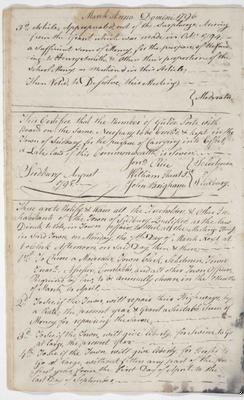 March Anno Domini 1796
3d Article, Appropriated out of the
from the Grant which was made in Octr 1794
a Sufficient Sum of Money for the purpose of
& their proportion of the
School Money as mentioned in this Article
Then Voted to Desolve this Meeting
Moderator
This Certifies that the Number of Guide Posts with
Boards on the Same, Necessary to be Erected & kept in the
Town of Sudbury for the purpose of Carrying into Effect
a Late Law of this Commonwealth is
Rice
Sudbury August William Hunt Selectmen
1795 John Brigham Sudbury
These are to Notify & Warn all the Freeholders & other In-
habitants of the Town of Sudbury Qualified as the Law
Directs to Vote in Town to meet at the Meeting House
in said Town on Monday the Day of March next at
o'Clock Afternoon on said Day then & there
1st To Chose a Moderator Town Clerk Selectmen Town
Treasr Assessors Constables and all other Town Officers
Required by Law to be annually chosen in the Months
of March or April
2d To see if the Town will repair their Highways by
a Rate, the present year & grant a Suitable Sum of
Money for repairing the Same
3d To see if the Town will give liberty for Swine to go
at large the present year
4th To see if the Town will give liberty for
go at large without any part of the
year from the first Day of April to the
last Day of September